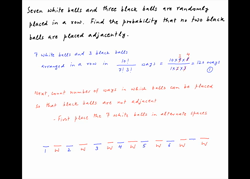 Seven white balls and three black balls are randomly
placed in a row. Find the probability that no two black
balls are placed adjacently.
7 white balls and 3 black balls
arranged in a row in 10!/7!3! ways = 10×9×8/1×2×3 = 120 ways
①
Next, count number of ways in which balls can be placed
so that black balls are not adjacent
- First place the 7 white balls in alternate spaces
W W W W W
1 2 3 4 5 6